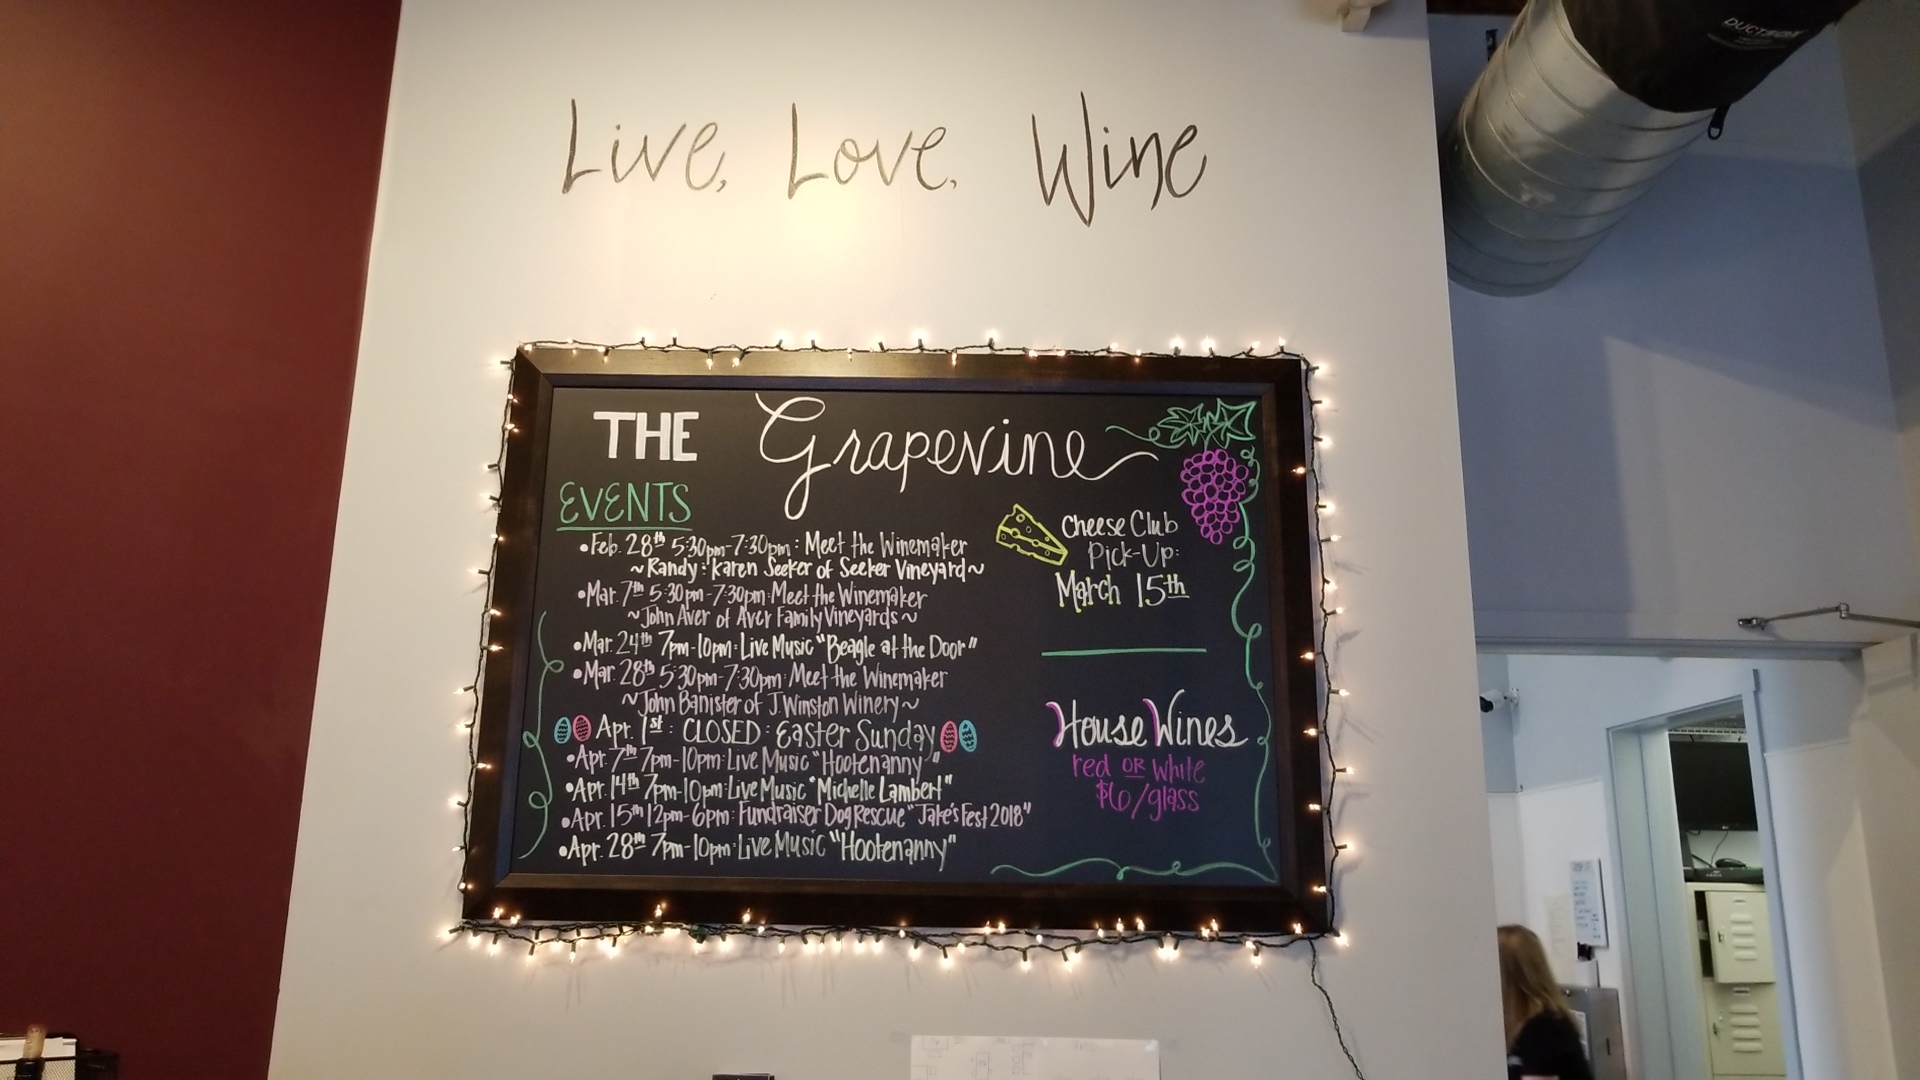 Live, Love, Wine
DUCTSOX
THE Grapevine
EVENTS
• Feb. 28th 5:30pm-7:30pm: Meet the Winemaker
~Randy & Karen Seeker of Seeker Vineyard~
• Mar. 7th 5:30pm-7:30pm: Meet the Winemaker
~John Aver of Aver Family Vineyards~
• Mar. 24th 7pm-10pm: Live Music "Beagle at the Door"
• Mar. 28th 5:30pm-7:30pm: Meet the Winemaker
~John Banister of J. Winston Winery~
Apr. 1st: CLOSED: Easter Sunday
• Apr. 7th 7pm-10pm: Live Music "Hootenanny"
• Apr. 14th 7pm-10pm: Live Music "Michelle Lambert"
• Apr. 15th 12pm-6pm: Fundraiser Dog Rescue "Jake's Fest 2018"
• Apr. 28th 7pm-10pm: Live Music "Hootenanny"
Cheese Club
Pick-Up:
March 15th
House Wines
red OR white
$6/glass